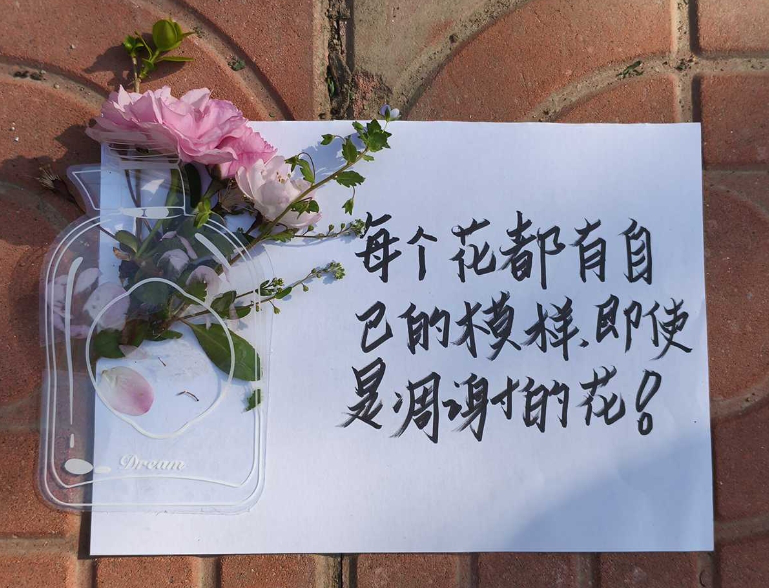 每个花都有自
己的模样,即使
是凋谢的花!
Dream